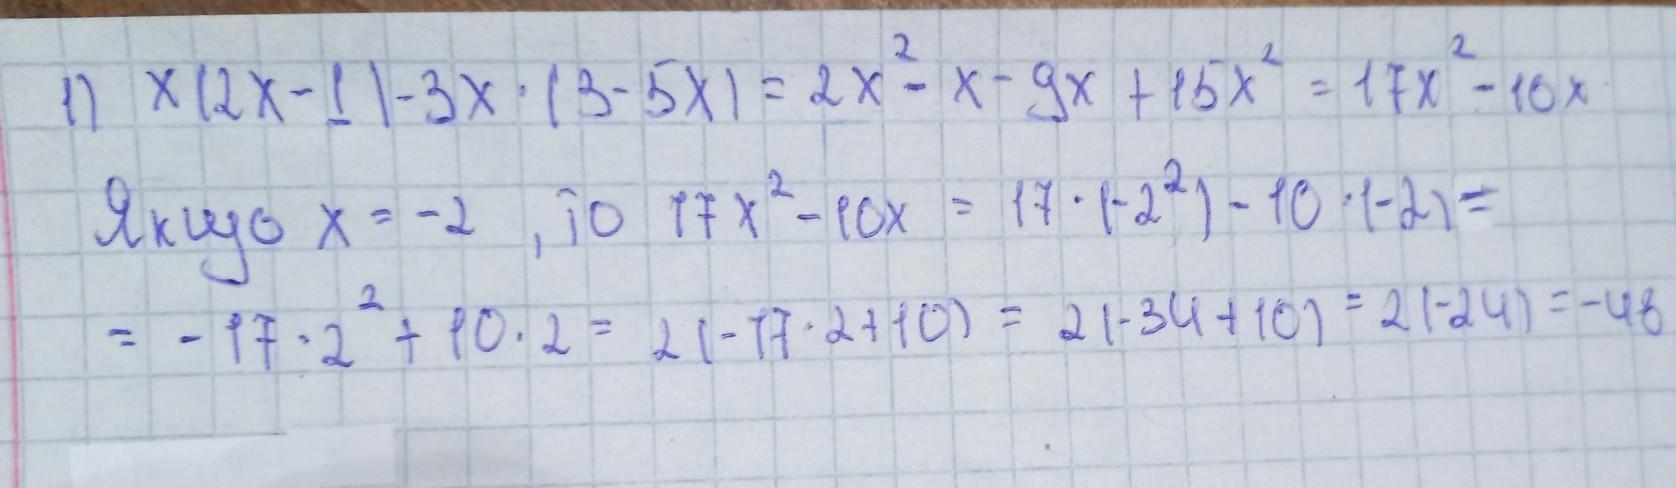 1) x(2x-1)-3x·(3-5x)=2x²-x-9x+15x²=17x²-10x
Якщо x=-2, то 17x²-10x=17·(-2²)-10·(-2)=
=-17·2²+10·2=2(-17·2+10)=2(-34+10)=2(-24)=-48